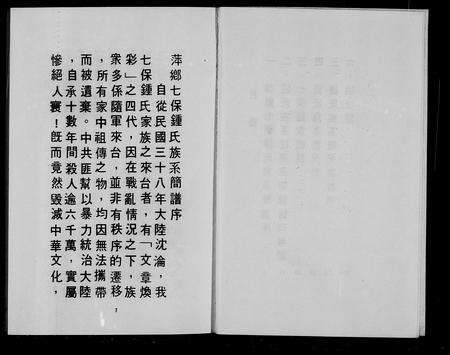 萍鄉七保鍾氏族系簡譜序
自從民國三十八年大陸沈淪，我
七保鍾氏家族之來台者，有「文章煥
彩」之四代，因在戰亂情況之下，族
衆多係隨軍來台，並非有秩序的遷移，
，所有家中祖傳之物，均因無法攜帶
而被遺棄。中共匪幫以暴力統治大陸
，自承十數年間殺人逾六千萬，實屬
慘絕人寰！旣而竟然毀滅中華文化，